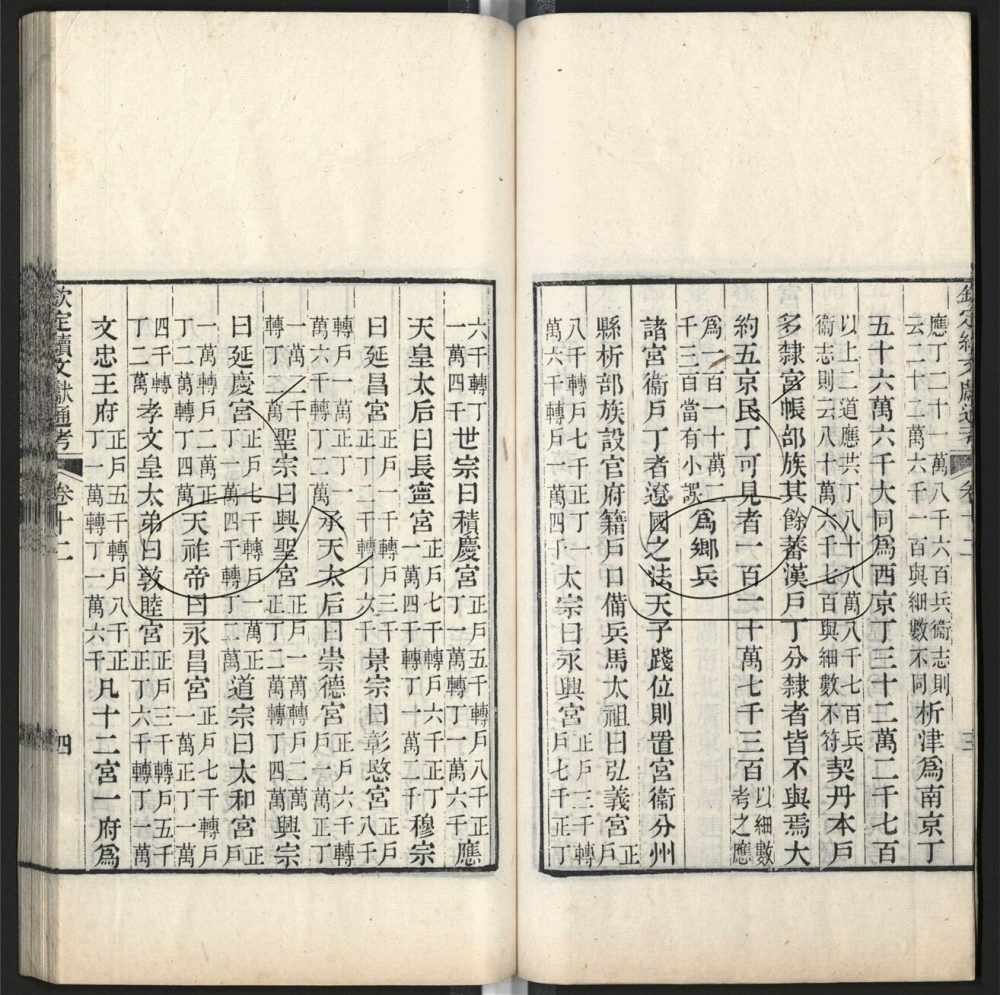 欽定續文獻通考 卷十二 三
應丁二十一萬八千六百兵衞志則云二十二萬六千一百與細數不同析津爲南京丁
五十六萬六千大同爲西京丁三十二萬二千七百
以上二道應共丁八十八萬八千七百兵衞志則云八十萬六千七百與細數不符契丹本戶
多隸宮帳部族其餘蕃漢戶丁分隸者皆不與焉大
約五京民丁可見者一百一十萬七千三百以細數考之應
爲一百一十萬二千三百當有小誤爲鄉兵
諸宮衞戶丁者遼國之法天子踐位則置宮衞分州
縣析部族設官府籍戶口備兵馬太祖曰弘義宮正戶
八千轉戶七千正丁一萬六千轉戶一萬四千太宗曰永興宮正戶三千轉戶七千正丁
六千轉丁一萬四千世宗曰積慶宮正戶五千轉戶八千正丁一萬轉丁一萬六千應
天皇太后曰長寧宮正戶七千轉戶六千正丁一萬四千轉丁一萬二千穆宗
曰延昌宮正戶一千轉戶三千正丁二千轉丁六千景宗曰彰愍宮正戶八千
轉戶一萬正丁一萬六千轉丁二萬承天太后曰崇德宮正戶六千轉戶一萬正丁
一萬二千轉丁二萬聖宗曰興聖宮正戶一萬轉戶二萬正丁二萬轉丁四萬興宗
曰延慶宮正戶七千轉戶一萬正丁一萬四千轉丁二萬道宗曰太和宮正戶
一萬轉戶二萬正丁二萬轉丁四萬天祚帝曰永昌宮正戶七千轉戶一萬正丁一萬
四千轉丁二萬孝文皇太弟曰敦睦宮正戶三千轉戶五千正丁六千轉丁一萬
文忠王府正戶五千轉戶八千正丁一萬轉丁一萬六千凡十二宮一府爲
欽定續文獻通考 卷十二 四